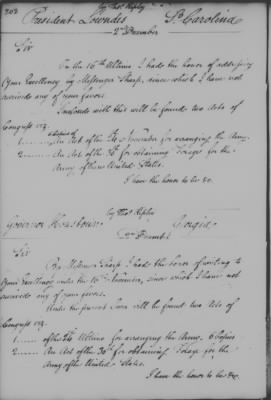 303
by Thos Ripley
President Lowndes So. Carolina
2d December
Sir
On the 16th Ultimo I had the honor of addressing
your Excellency by Messenger Sharp, since which I have not
received any of your favors.
Inclosed with this will be found two Acts of
Congress viz.
1 6 Copies of An Act of the of November for arranging the Army.
2 An Act of the 30th for obtaining Forage for the
Army of these United States.
I have the honor to be &c.
by Thos Ripley
Governor Houstoun Georgia
2d December
Sir
By Messenger Sharp I had the honor of writing to
your Excellency under the 16th November, since which I have not
received any of your favors.
Under the present Cover will be found two Acts of
Congress viz.
1 of the Ultimo for arranging the Army. 6 Copies
2 An Act of the 30th for obtaining Forage for the
Army of the United States.
I have the honor to be &c.